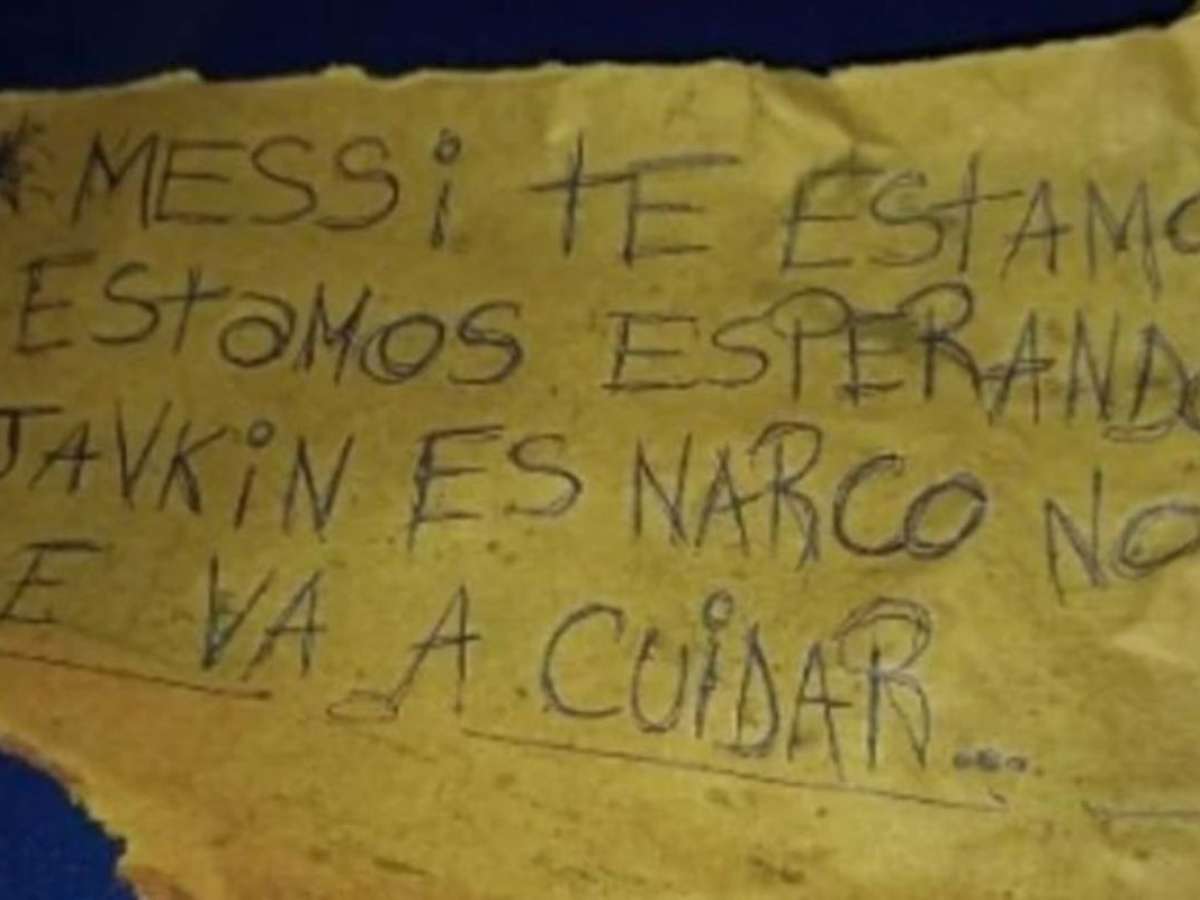 * MESSi tE EStAMO
EStaMOS ESPERANDO
JAVKiN ES NARCO NO
E VA A CUiDAR...